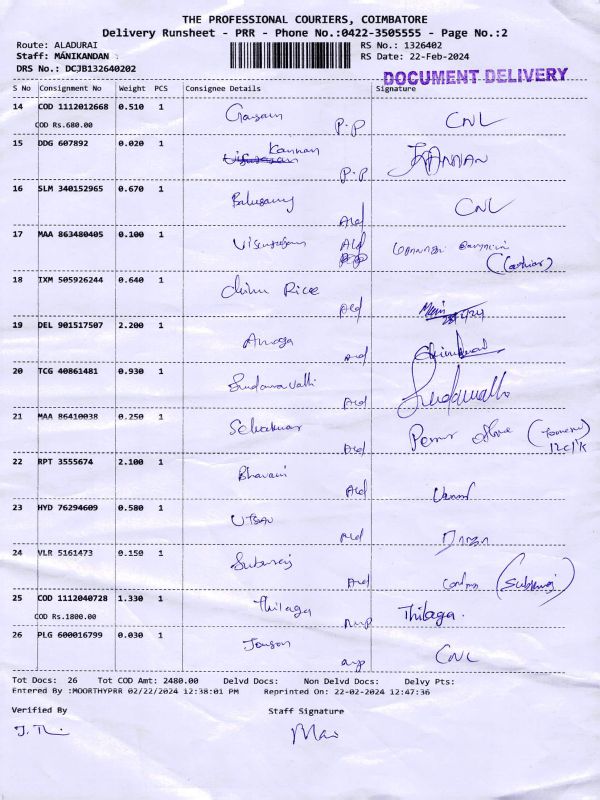 THE PROFESSIONAL COURIERS, COIMBATORE
Delivery Runsheet - PRR - Phone No.:0422-3505555 - Page No.:2
Route: ALADURAI RS No.: 1326402
Staff: MANIKANDAN : RS Date: 22-Feb-2024
DRS No.: DCJB132640202
DOCUMENT DELIVERY
S No Consignment No Weight PCS Consignee Details Signature
14 COD 1112012668 0.510 1 P.P CNL
COD Rs.680.00
15 DDG 607892 0.020 1 Kannan P.P KANNAN
16 SLM 340152965 0.670 1 Balusamy Ald CNL
17 MAA 863480405 0.100 1 Ald
18 IXM 505926244 0.640 1 Rice Ald
19 DEL 901517507 2.200 1 Ald
20 TCG 40861481 0.930 1 Sundaravalli Ald
21 MAA 86410038 0.250 1 Selvakumar Ald
22 RPT 3555674 2.100 1 Bhavani Ald
23 HYD 76294609 0.580 1 UTSAV Ald
24 VLR 5161473 0.150 1 Ald
25 COD 1112040728 1.330 1 Thilaga Thilaga.
COD Rs.1800.00
26 PLG 600016799 0.030 1 CNL
Tot Docs: 26 Tot COD Amt: 2480.00 Delvd Docs: Non Delvd Docs: Delvy Pts:
Entered By :MOORTHYPRR 02/22/2024 12:38:01 PM Reprinted On: 22-02-2024 12:47:36
Verified By Staff Signature